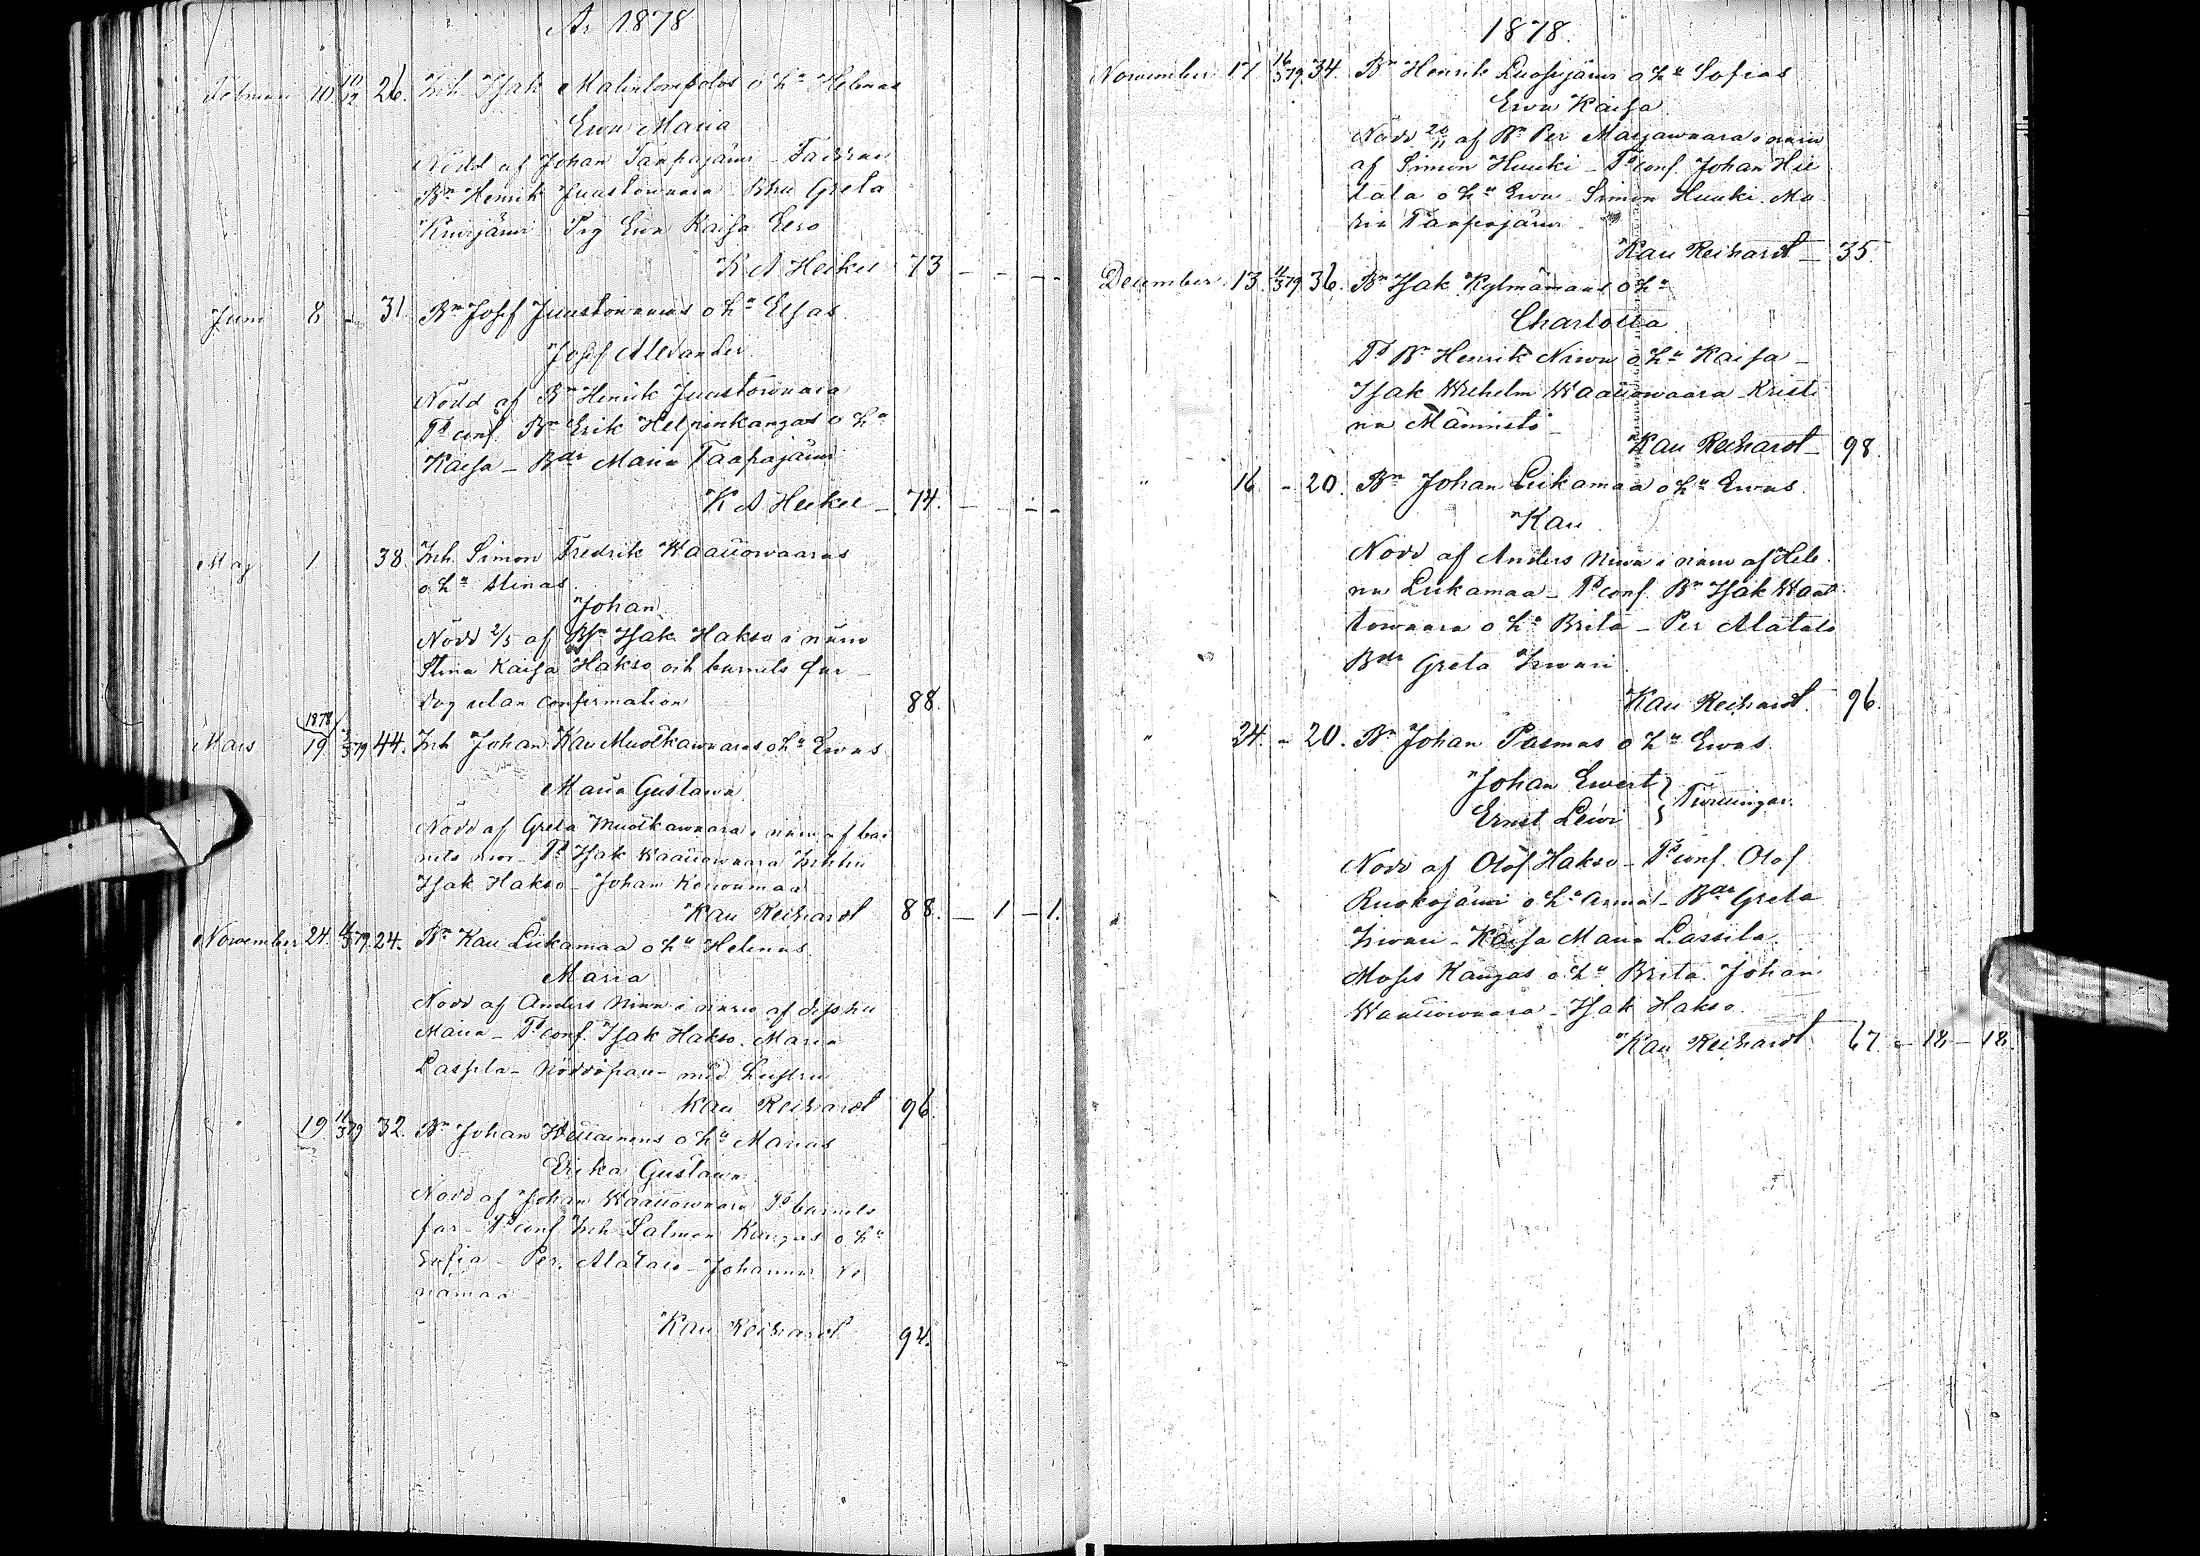 År 1878
Februari 10 10/12 26. Inh. Isak Malinlompolos o h:u Helenas
Ewa Maria
Nödd af Johan Taapajärwi - Faddrar
B:n Henrik Juustowaara Bhu Greta
Kuirjärwi Pig Ewa Kaisa Eero
K A Heikel 73 - - - -
Juni 8 - 31. B:n Josef Juustowaaras o h:u Elsas
Josef Alexander
Nödd af B:n Henrik Juustowaara
Td conf. B:n Erik Helpinkangas o h:u
Kaisa - Bdr Maria Taapajärwi
K A Heikel - 74. - - - -
Maj 1 38. Inh. Simon Fredrik Waattowaaras
o h:u Stinas
Johan
Nödd 2/5 af B:n Isak Hakso i närw
Stina Kaisa Hakso och barnets far
dog utan confirmation 88.
1878
Mars 19 3/3 79 44. Inh Johan Karl Muotkawaaras o h:u Ewas
Maria Gustawa
Nödd af Greta Muotkawaara i närw af bar
nets mor - Td Isak Waattowaara Inhhu
Isak Hakso - Johan
Karl Reichardt 88. - 1 - 1.
November 24. 11/3 79. 24. B:n Karl Liikamaa o h:u Helenas
Maria
Nödd af Anders Niwa i närw af dess hu
Maria - Td conf. Isak Hakso. Maria
Lassila - med hustru
Karl Reichardt 96.
" 19 11/3 79 32. B:n Johan o h:u Marias
Erika Gustawa
Nödd af Johan Waattowaara Td barnets
far - Td conf Inh Salmon Kangas o h:u
Sofia - Per Alatalo - Johanna
Karl Reichardt 94.
1878.
November 17 16/3 79. 34. B:n Henrik Luosujärwi o h:u Sofias
Ewa Kaisa
Nödd 20/11 af B:n Per Marjawaara i närw
af Simon Huuki - Td conf. Johan Hie
tala o h:u Ewa Simon Huuki. Ma
ria Taapajärwi -
Karl Reichardt - 35.
December 13. 11/3 79 36. B:n Isak Kylmämaas o h:u
Charlotta
Td B:n Henrik Niwa o h:u Kaisa -
Isak Wilhelm Waattowaara Kristi
na Männistö -
Karl Reichardt - 98.
" 16 - 20. B:n Johan Liikamaa o h:u Ewas.
Karl
Nödd af Anders Niwa i närw af Hele
na Liikamaa - Td conf. B:n Isak Waat
towaara o h:u Brita - Per Alatalo
Bdr Greta Iswari
Karl Reichardt. 96.
" 24. - 20. B:n Johan Pasmas o h:u Ewas.
Johan Ewert } Twillingar.
Ernst Lewi
Nödd af Olof Hakso - Td conf. Olof
Ruokojärwi o h:u Anna - Bdr Greta
Iswari - Kaisa Maria Lassila
Moses Kangas o h:u Brita. Johan
Waattowaara - Isak Hakso
Karl Reichardt 67. - 18 - 18.